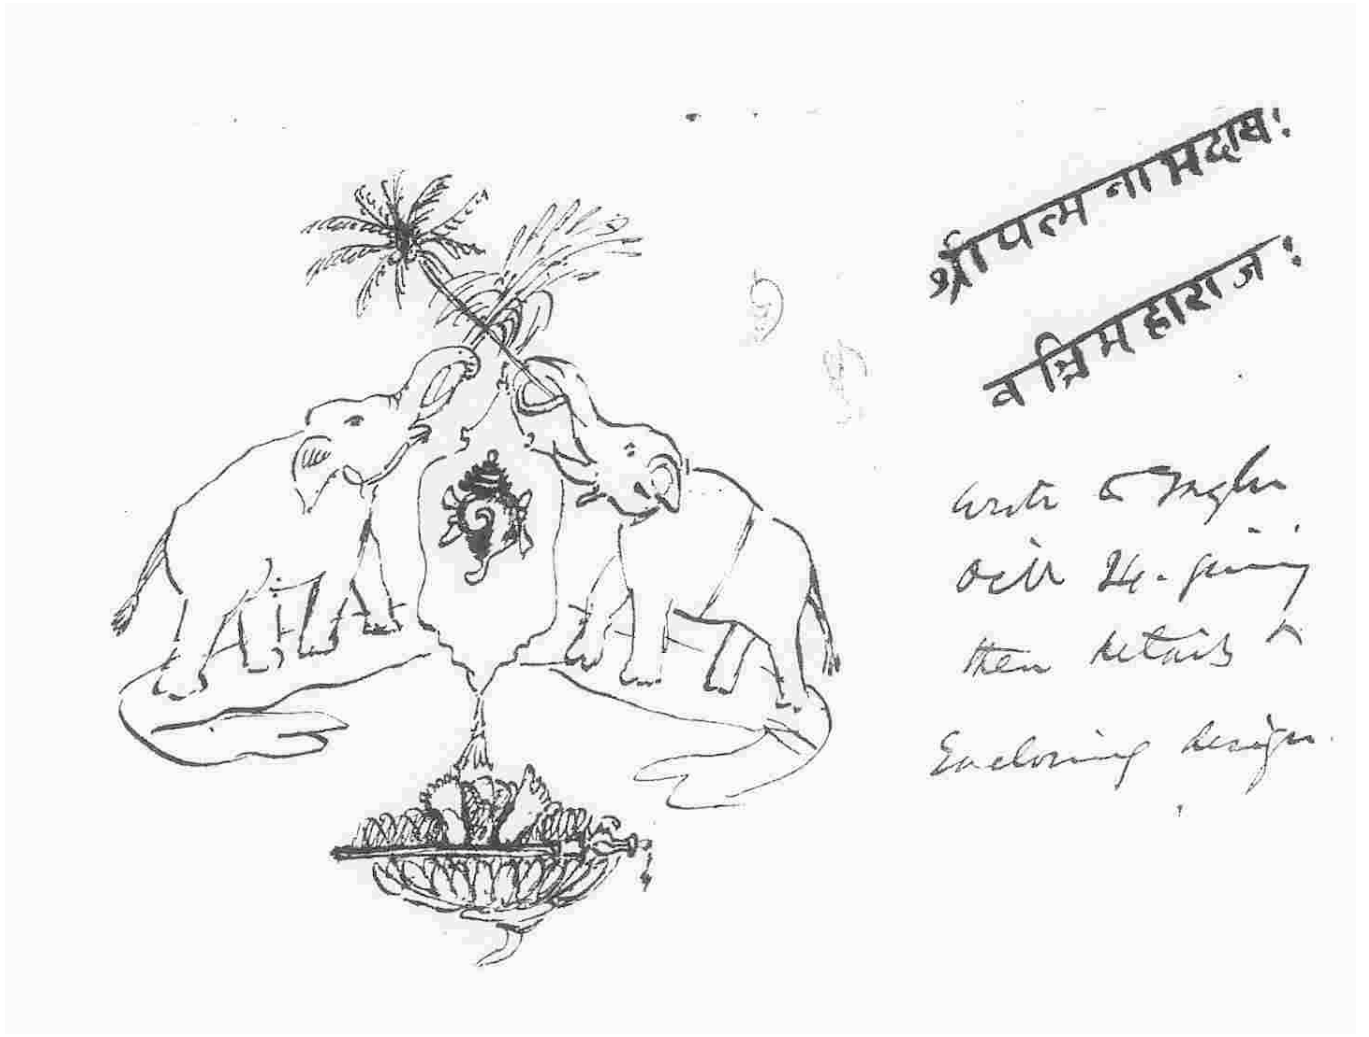 श्रीपत्मनामदासः
वन्निमहाराजः
wrote to
Octr 24. giving
them details &
Enclosing design.